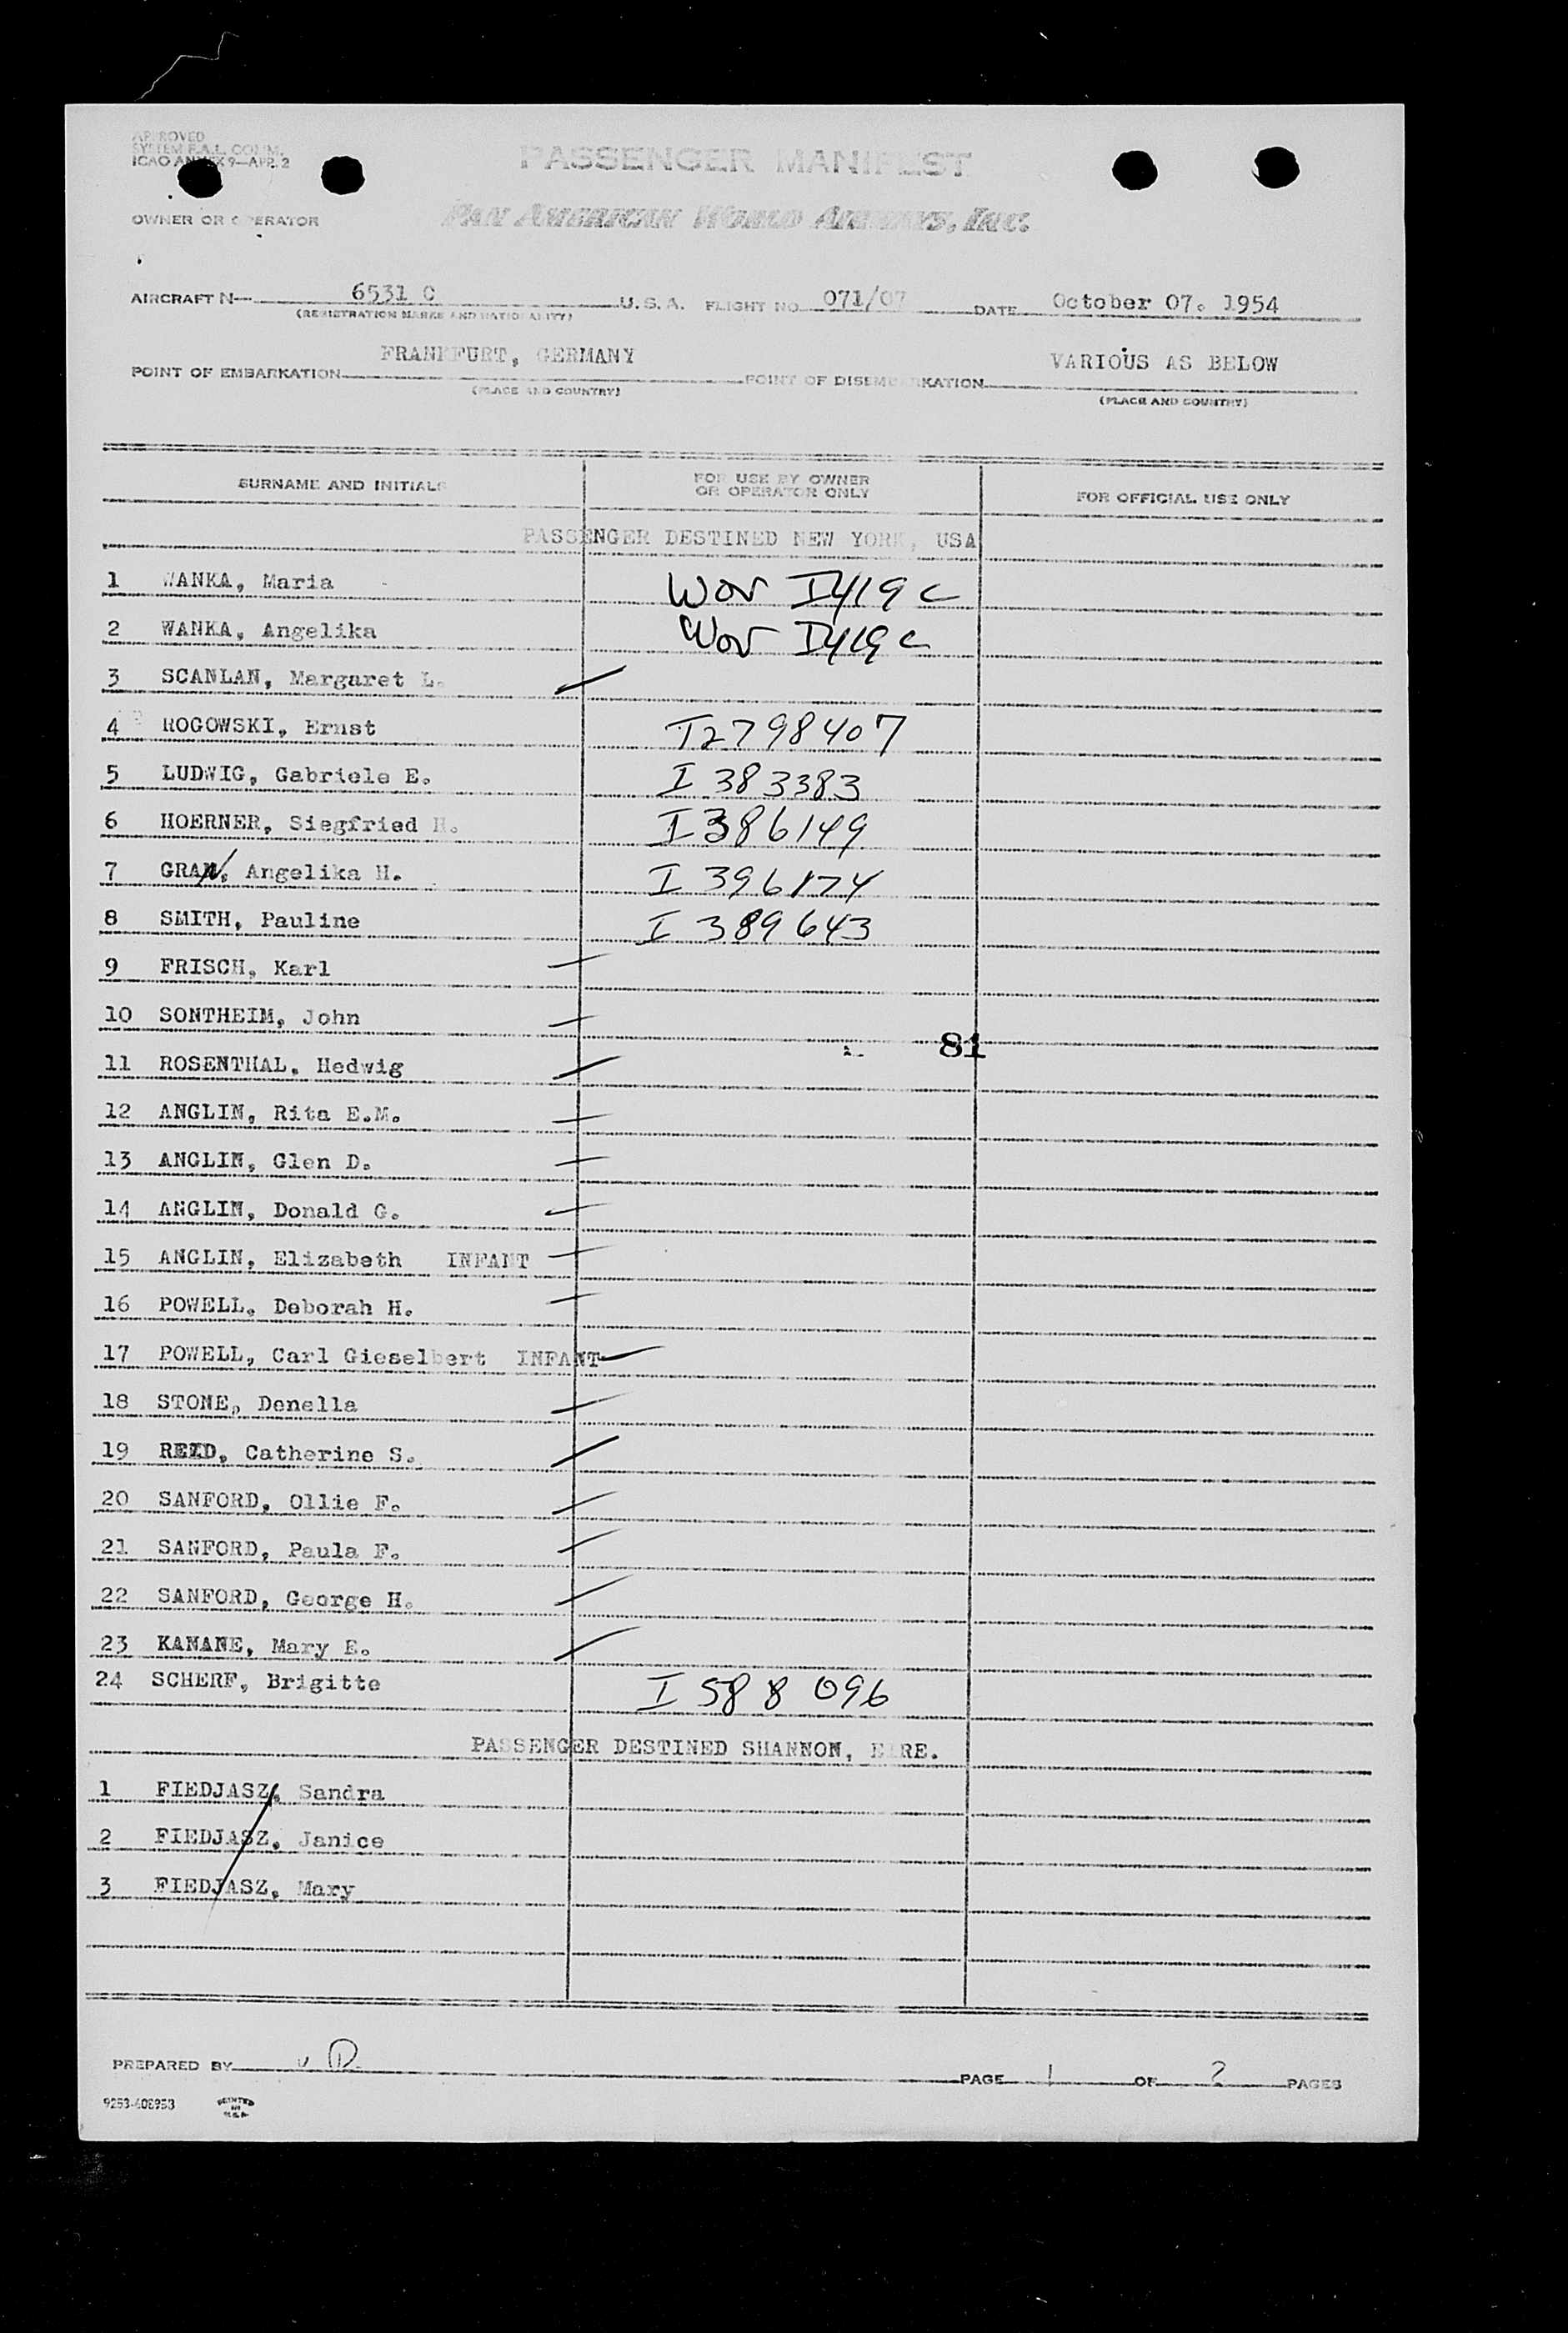 APPROVED
SYSTEM F.A.L. COMM.
ICAO ANNEX 9—APP. 2
PASSENGER MANIFEST
OWNER OR OPERATOR PAN AMERICAN WORLD AIRWAYS, INC.
AIRCRAFT N— 6531 C U. S. A. FLIGHT NO. 071/07 DATE October 07. 1954
(REGISTRATION MARKS AND NATIONALITY)
FRANKFURT, GERMANY VARIOUS AS BELOW
POINT OF EMBARKATION POINT OF DISEMBARKATION
(PLACE AND COUNTRY) (PLACE AND COUNTRY)
SURNAME AND INITIALS FOR USE BY OWNER OR OPERATOR ONLY FOR OFFICIAL USE ONLY
PASSENGER DESTINED NEW YORK, USA
1 WANKA, Maria Wov I419 c
2 WANKA, Angelika Wov I419 c
3 SCANLAN, Margaret L.
4 ROGOWSKI, Ernst I2798407
5 LUDWIG, Gabriele E. I 383383
6 HOERNER, Siegfried H. I386149
7 GRAN, Angelika H. I 396174
8 SMITH, Pauline I 389643
9 FRISCH, Karl
10 SONTHEIM, John
81
11 ROSENTHAL, Hedwig
12 ANGLIN, Rita E.M.
13 ANGLIN, Glen D.
14 ANGLIN, Donald G.
15 ANGLIN, Elizabeth INFANT
16 POWELL, Deborah H.
17 POWELL, Carl Gieselbert INFANT
18 STONE, Denella
19 REID, Catherine S.
20 SANFORD, Ollie F.
21 SANFORD, Paula F.
22 SANFORD, George H.
23 KANANE, Mary E.
24 SCHERF, Brigitte I 588 096
PASSENGER DESTINED SHANNON, EIRE.
1 FIEDJASZ, Sandra
2 FIEDJASZ, Janice
3 FIEDJASZ, Mary
PREPARED BY PAGE 1 OF 2 PAGES
9253-408953 PRINTED IN U.S.A.